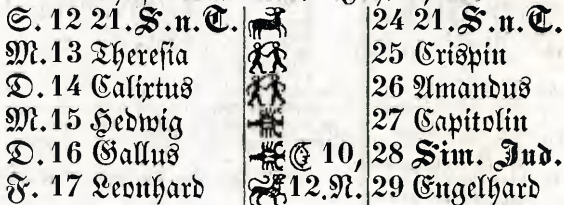 S. 12 21. S. n. T. 24 21. S. n. T.
M. 13 Theresia 25 Crispin
D. 14 Calixtus 26 Amandus
M. 15 Hedwig 27 Capitolin
D. 16 Gallus ☾ 10, 28 Sim. Jud.
F. 17 Leonhard 12. N. 29 Engelhard